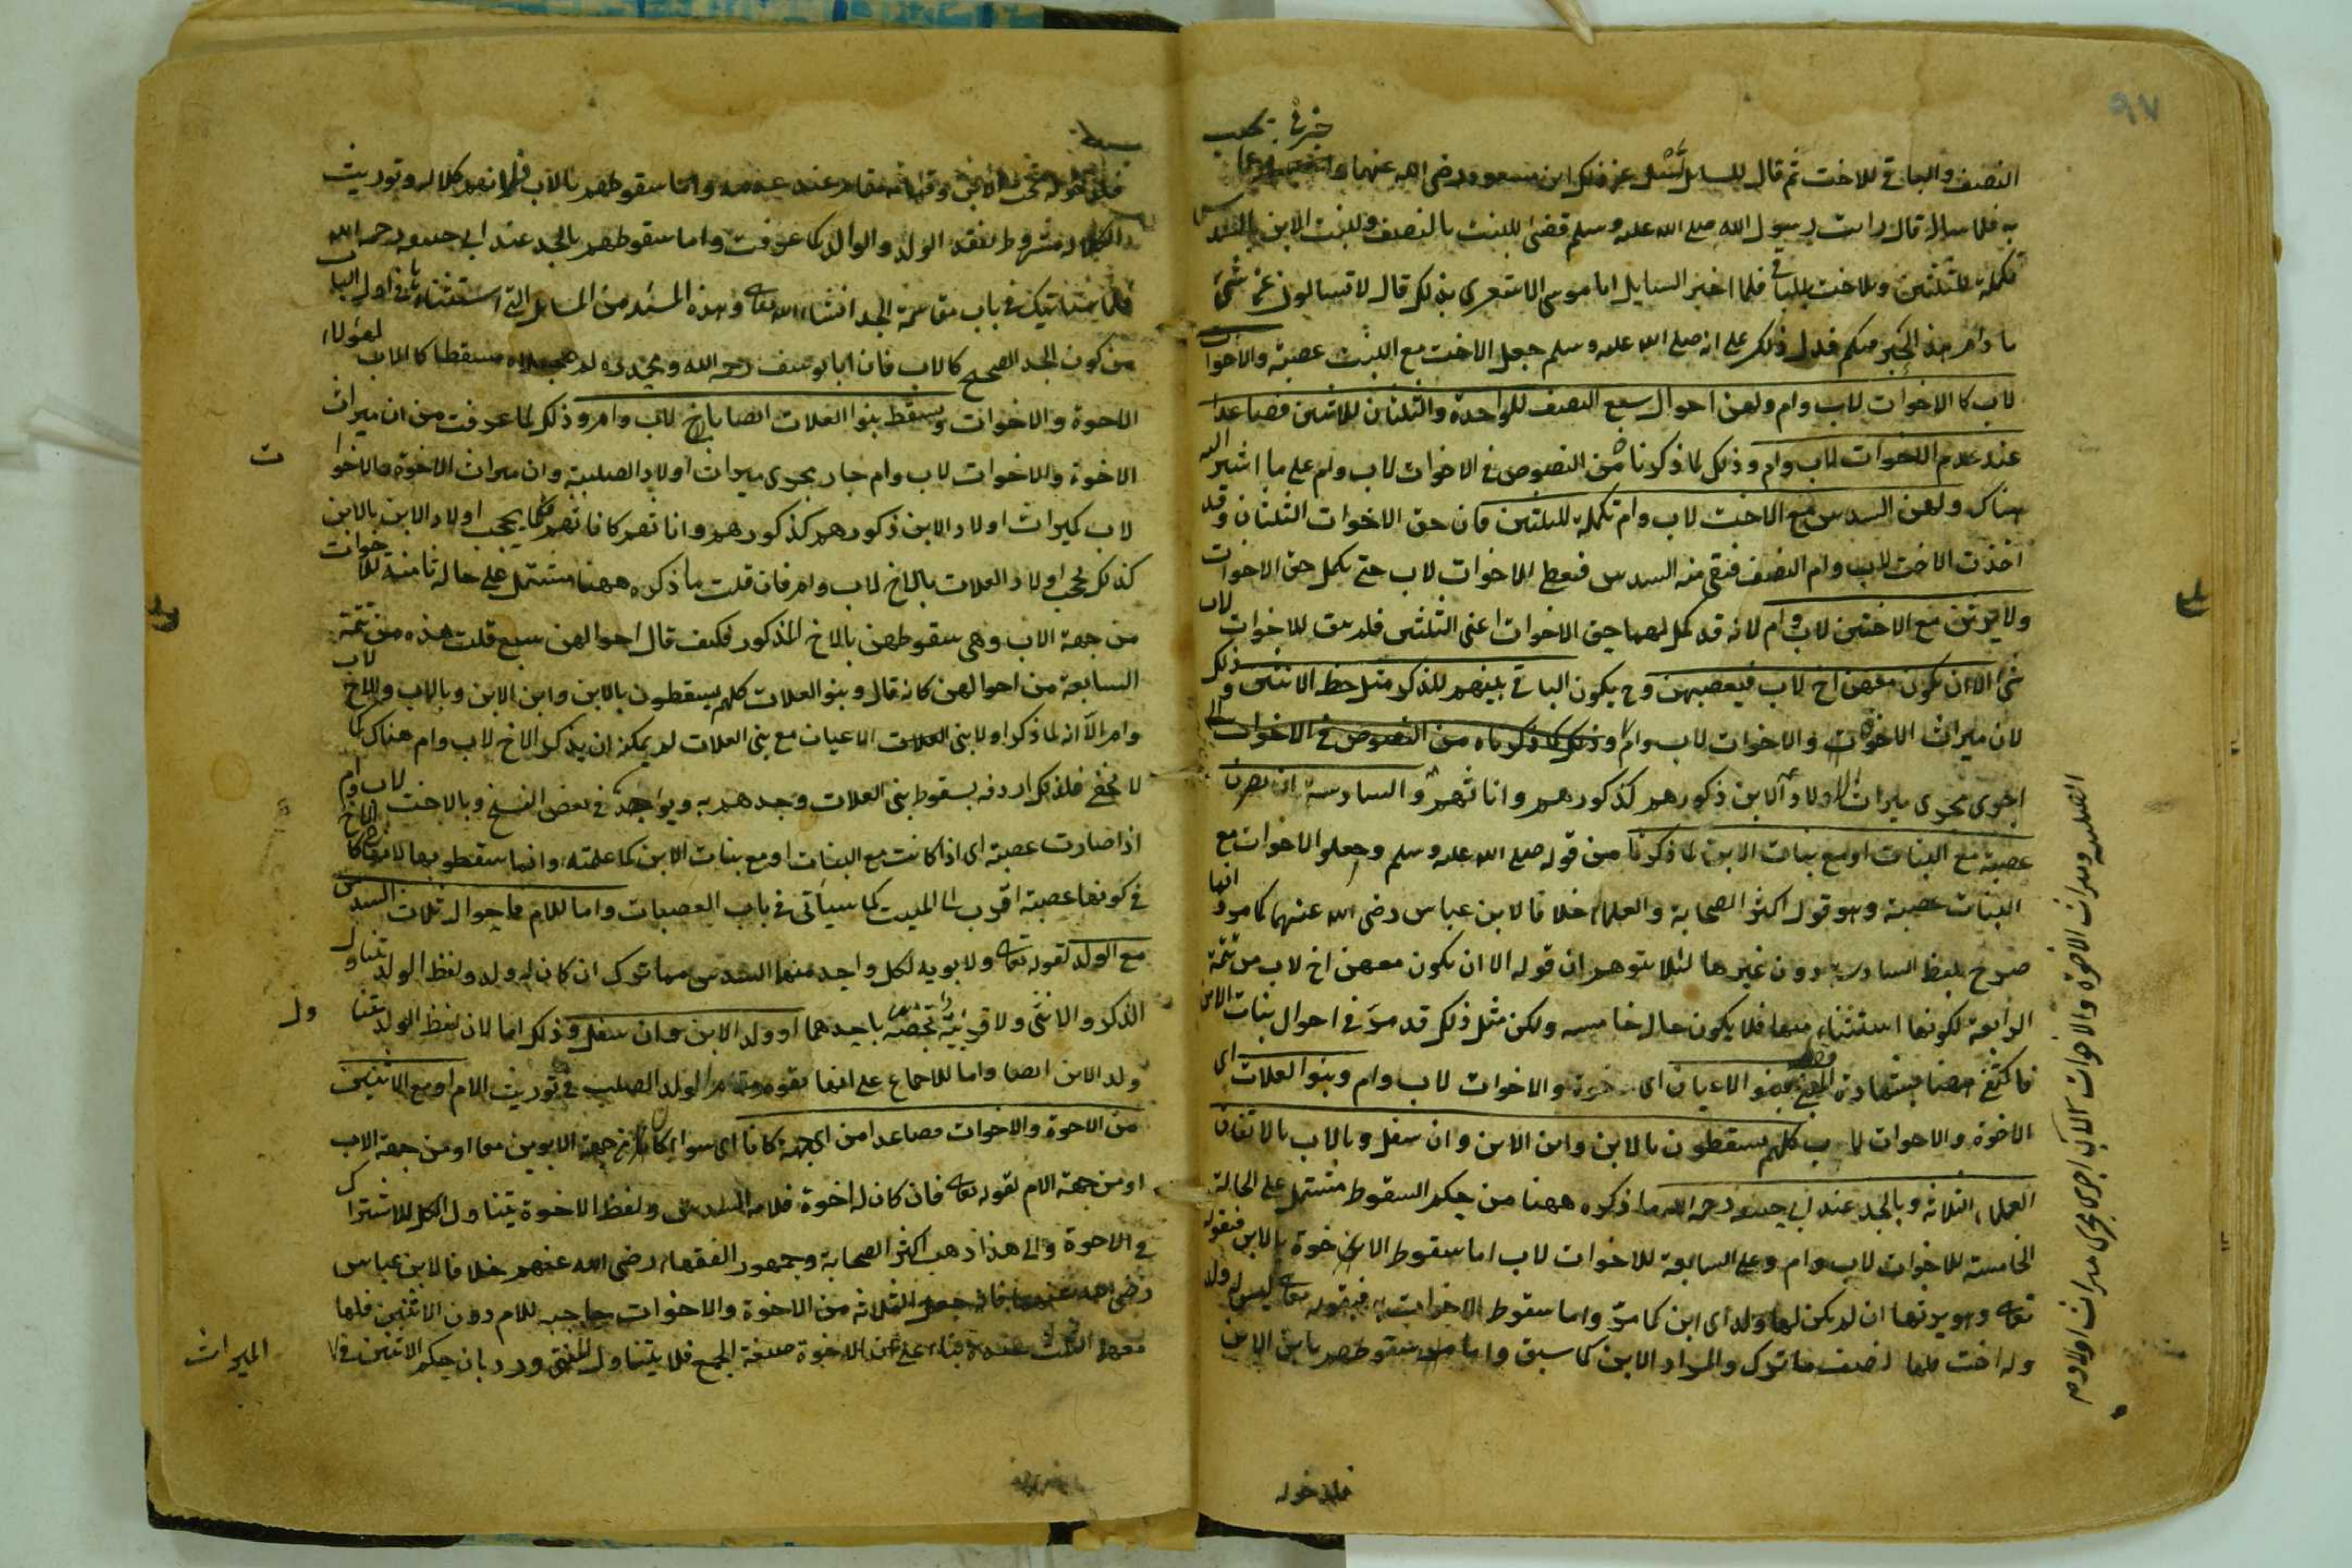 ٩٧
النصف والباقي للاخت ثم قال للسايل سل عن ذلك ابن مسعود رضي الله عنهما
به فلما سال قال رايت رسول الله صلع الله عليه وسلم قضى للبنت بالنصف ولبنت الابن بالسدس
تكملة للثلثين وللاخت بالباقي فلما اخبر السايل ابا موسى الاشعري بذلك قال لا تسالوني عن شئ
ما دام هذا الحبر فيكم فدل ذلك على انه صلع الله عليه وسلم جعل الاخت مع البنت عصبة والاخوات
لاب كالاخوات لاب وام ولهن احوال سبع النصف للواحدة والثلثان للاثنين فصاعدا
عند عدم الاخوات لاب وام وذلك لما ذكرنا من النصوص في الاخوات لاب وام على ما اشير اليه
هناك ولهن السدس مع الاخت لاب وام تكملة للثلثين فان حق الاخوات الثلثان وقد
اخذت الاخت لاب وام النصف فبقي منه السدس فيعطى للاخوات لاب حتى يكمل حق الاخوات
ولا يرثن مع الاختين لاب وام لانه قد كمل لهما حق الاخوات اعني الثلثين فلم يبق للاخوات لاب
شئ الا ان يكون معهن اخ لاب فيعصبهن وح يكون الباقي بينهم للذكر مثل حظ الانثيين وذلك
لان ميراث الاخوة والاخوات لاب وام وذلك لما ذكرناه من النصوص في الاخوات
اجرى مجرى ميراث اولاد الابن ذكورهم كذكورهم واناثهم والسادسة ان يصرن
عصبة مع البنات او مع بنات الابن لما ذكرنا من قوله صلع الله عليه وسلم وجعلوا الاخوات مع
البنات عصبة وهو قول اكثر الصحابة والعلماء خلافا لابن عباس رضي الله عنهما كما مر وانما
صرح بلفظ السادسة دون غيرها لئلا يتوهم ان قوله الا ان يكون معهن اخ لاب من تتمة
الرابعة لكونها استثناء منها فلا يكون حال خامسه ولكن مثل ذلك قد مر في احوال بنات الابن
فاكتفى ههنا بشهادة وبنو الاعيان اى الاخوة والاخوات لاب وام وبنو العلات اى
الاخوة والاخوات لاب كلهم يسقطون بالابن وابن الابن وان سفل وبالاب بالاتفاق
العلماء الثلاثة وبالجد عند ابي حنيفة رحمه الله ما ذكره ههنا من حكم السقوط مشتمل على الحالة
الخامسة للاخوات لاب وام وعلى السابعة للاخوات لاب اما سقوط الاخوة بالابن فبقوله
تعالى وهو يرثها ان لم يكن لها ولد اى ابن كما مر واما سقوط الاخوات به فبقوله تعالى ليس له ولد
وله اخت فلها نصف ما ترك والمراد الابن كما سبق واما سقوطهم بابن الابن
فلدخوله
الصلبية وميراث الاخوة والاخوات لاب اجرى مجرى ميراث اولادم
فلدخوله تحت الابن وقيامه مقامه عند عدمه واما سقوطهم بالاب فلانهم كلاله وتوريث
الكلاله مشروط بفقد الولد والوالد كما عرفت واما سقوطهم بالجد عند ابي حنيفة رحمه الله
فلما سياتيك في باب مقاسمة الجد انشاء الله تعالى وهذه المسئلة من المسايل التي استثناها في اول الباب
من كون الجد الصحيح كالاب فان ابا يوسف رحمه الله ومحمد لم يجعلاه مسقطا كالاب لهؤلاء
الاخوة والاخوات ويسقط بنوا العلات ايضا باخ لاب وام وذلك لما عرفت من ان ميراث
الاخوة والاخوات لاب وام جار مجرى ميراث اولاد الصلبية وان ميراث الاخوة والاخوات
لاب كميراث اولاد الابن ذكورهم كذكورهم واناثهم كاناثهم فكما يحجب اولاد الابن بالابن
كذلك يحجب اولاد العلات بالاخ لاب وام فان قلت ما ذكره ههنا مشتمل على حالة ثامنة للاخوات
من جهة الاب وهي سقوطهن بالاخ المذكور فكيف قال احوالهن سبع قلت هذه من تتمة
السابعة من احوالهن كانه قال وبنو العلات كلهم يسقطون بالابن وابن الابن وبالاب وبالاخ لاب
وام الا انه لما ذكر اولا بنى الاعيان مع بني العلات لم يمكنه ان يذكر الاخ لاب وام هناك كما
لا يخفى فلذلك اردفه بسقوط بني العلات وحدهم به ويواجد في بعض النسخ وبالاخت لاب وام
اذا صارت عصبة اى اذا كانت مع البنات او مع بنات الابن كما علمته وانما سقطو بها لانها كالاخ
في كونها عصبة اقرب الى الميت كما سيأتى في باب العصبات واما للام فاحوال ثلاث السدس
مع الولد لقوله تعالى ولابويه لكل واحد منهما السدس مما ترك ان كان له ولد ولفظ الولد يتناول
الذكر والانثى ولا قرينة تخصه باحدهما او ولد الابن وان سفل وذلك اما لان لفظ الولد يتناول
ولد الابن ايضا واما للاجماع على انها يقوم مقام الولد الصلب في توريث الام او مع الاثنين
من الاخوة والاخوات فصاعدا من اى جهة كانا اى سواء كانا من جهة الابوين معا او من جهة الاب
او من جهة الام لقوله تعالى فان كان له اخوة فلامه السدس ولفظ الاخوة يتناول الكل للاشتراك
في الاخوة والى هذا ذهب اكثر الصحابة وجمهور الفقهاء رضى الله عنهم خلافا لابن عباس
رضى الله عنهما فانه جعل الثلاثة من الاخوة والاخوات حاجبه للام دون الاثنين فلها
معهما الثلث عنده بناء على ان الاخوة صيغة الجمع فلا يتناول المثنى ورد بان حكم الاثنين في
الميراث